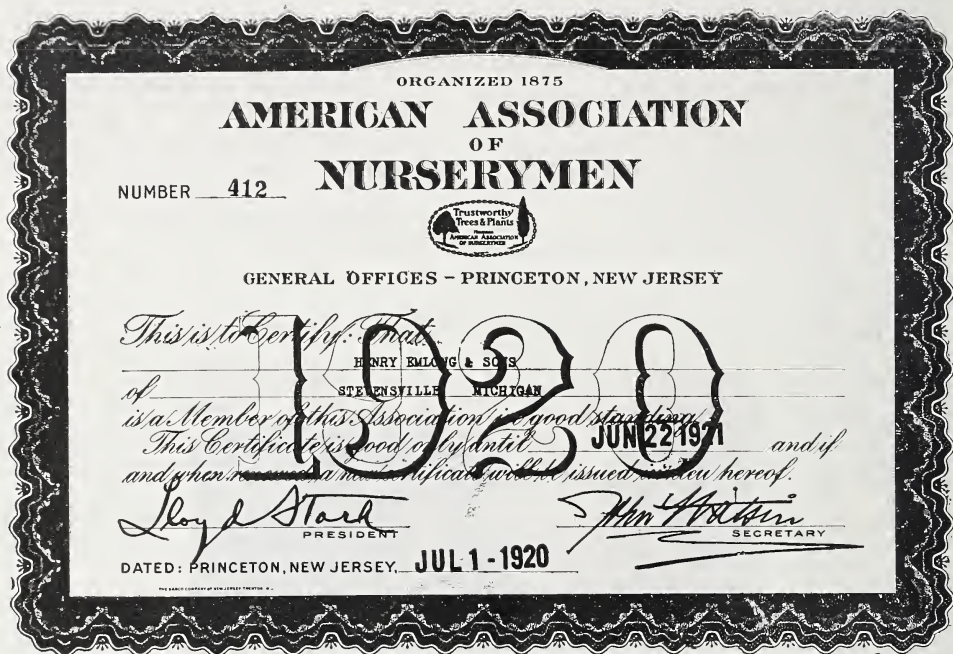 ORGANIZED 1875
AMERICAN ASSOCIATION
OF
NURSERYMEN
NUMBER 412
Trustworthy
Trees & Plants
AMERICAN ASSOCIATION
OF NURSERYMEN
GENERAL OFFICES - PRINCETON, NEW JERSEY
1920
This is to Certify: That
HENRY EMLONG & SONS
of STEVENSVILLE MICHIGAN
is a Member of this Association in good standing
This Certificate is good only until JUN 22 1921 and if
and when a new certificate will be issued in lieu hereof.
Lloyd Stark
PRESIDENT
John Watson
SECRETARY
DATED: PRINCETON, NEW JERSEY, JUL 1 - 1920